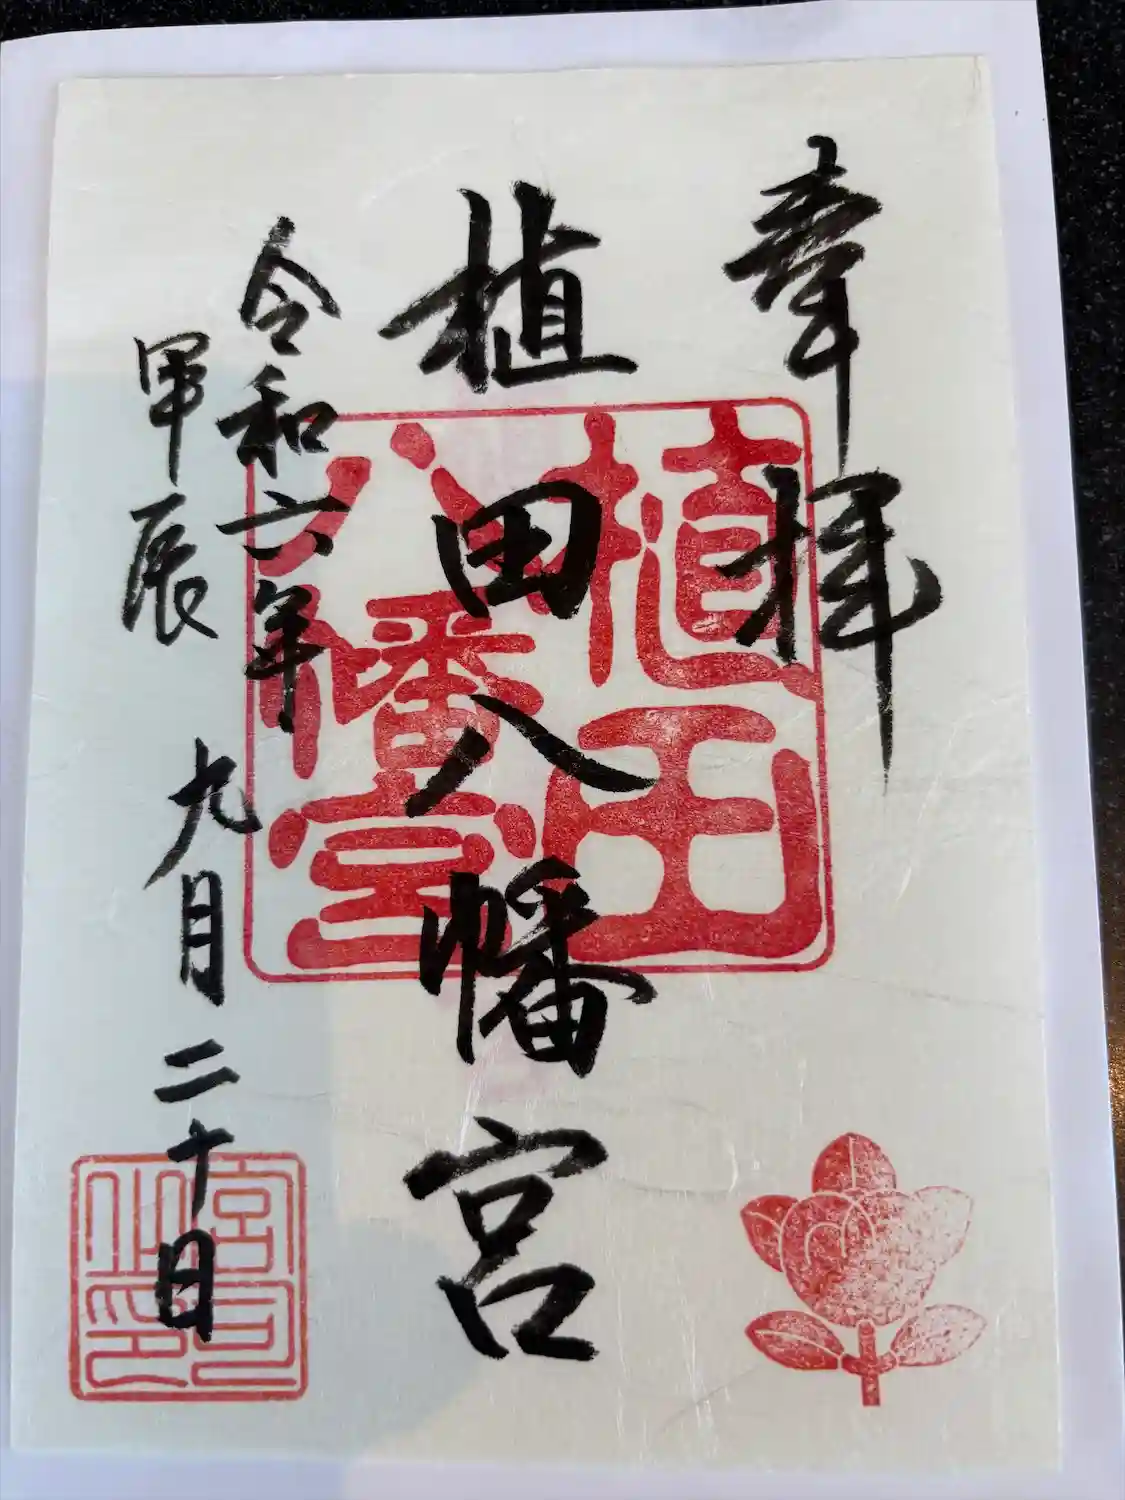 奉拝
植田八幡宮
令和六年
甲辰
九月二十日
植田
八幡宮
宮司
之印